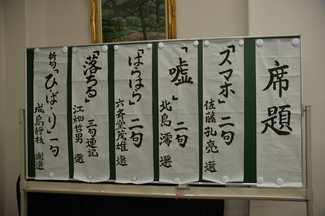 席題
「スマホ」二句
佐藤孔亮 選
「嘘」二句
北島澪 選
「ばらばら」二句
六斉堂茂雄 選
「落ちる」三句連記
江畑哲男 選
折句「ひばり」一句
成島静枝 謝選